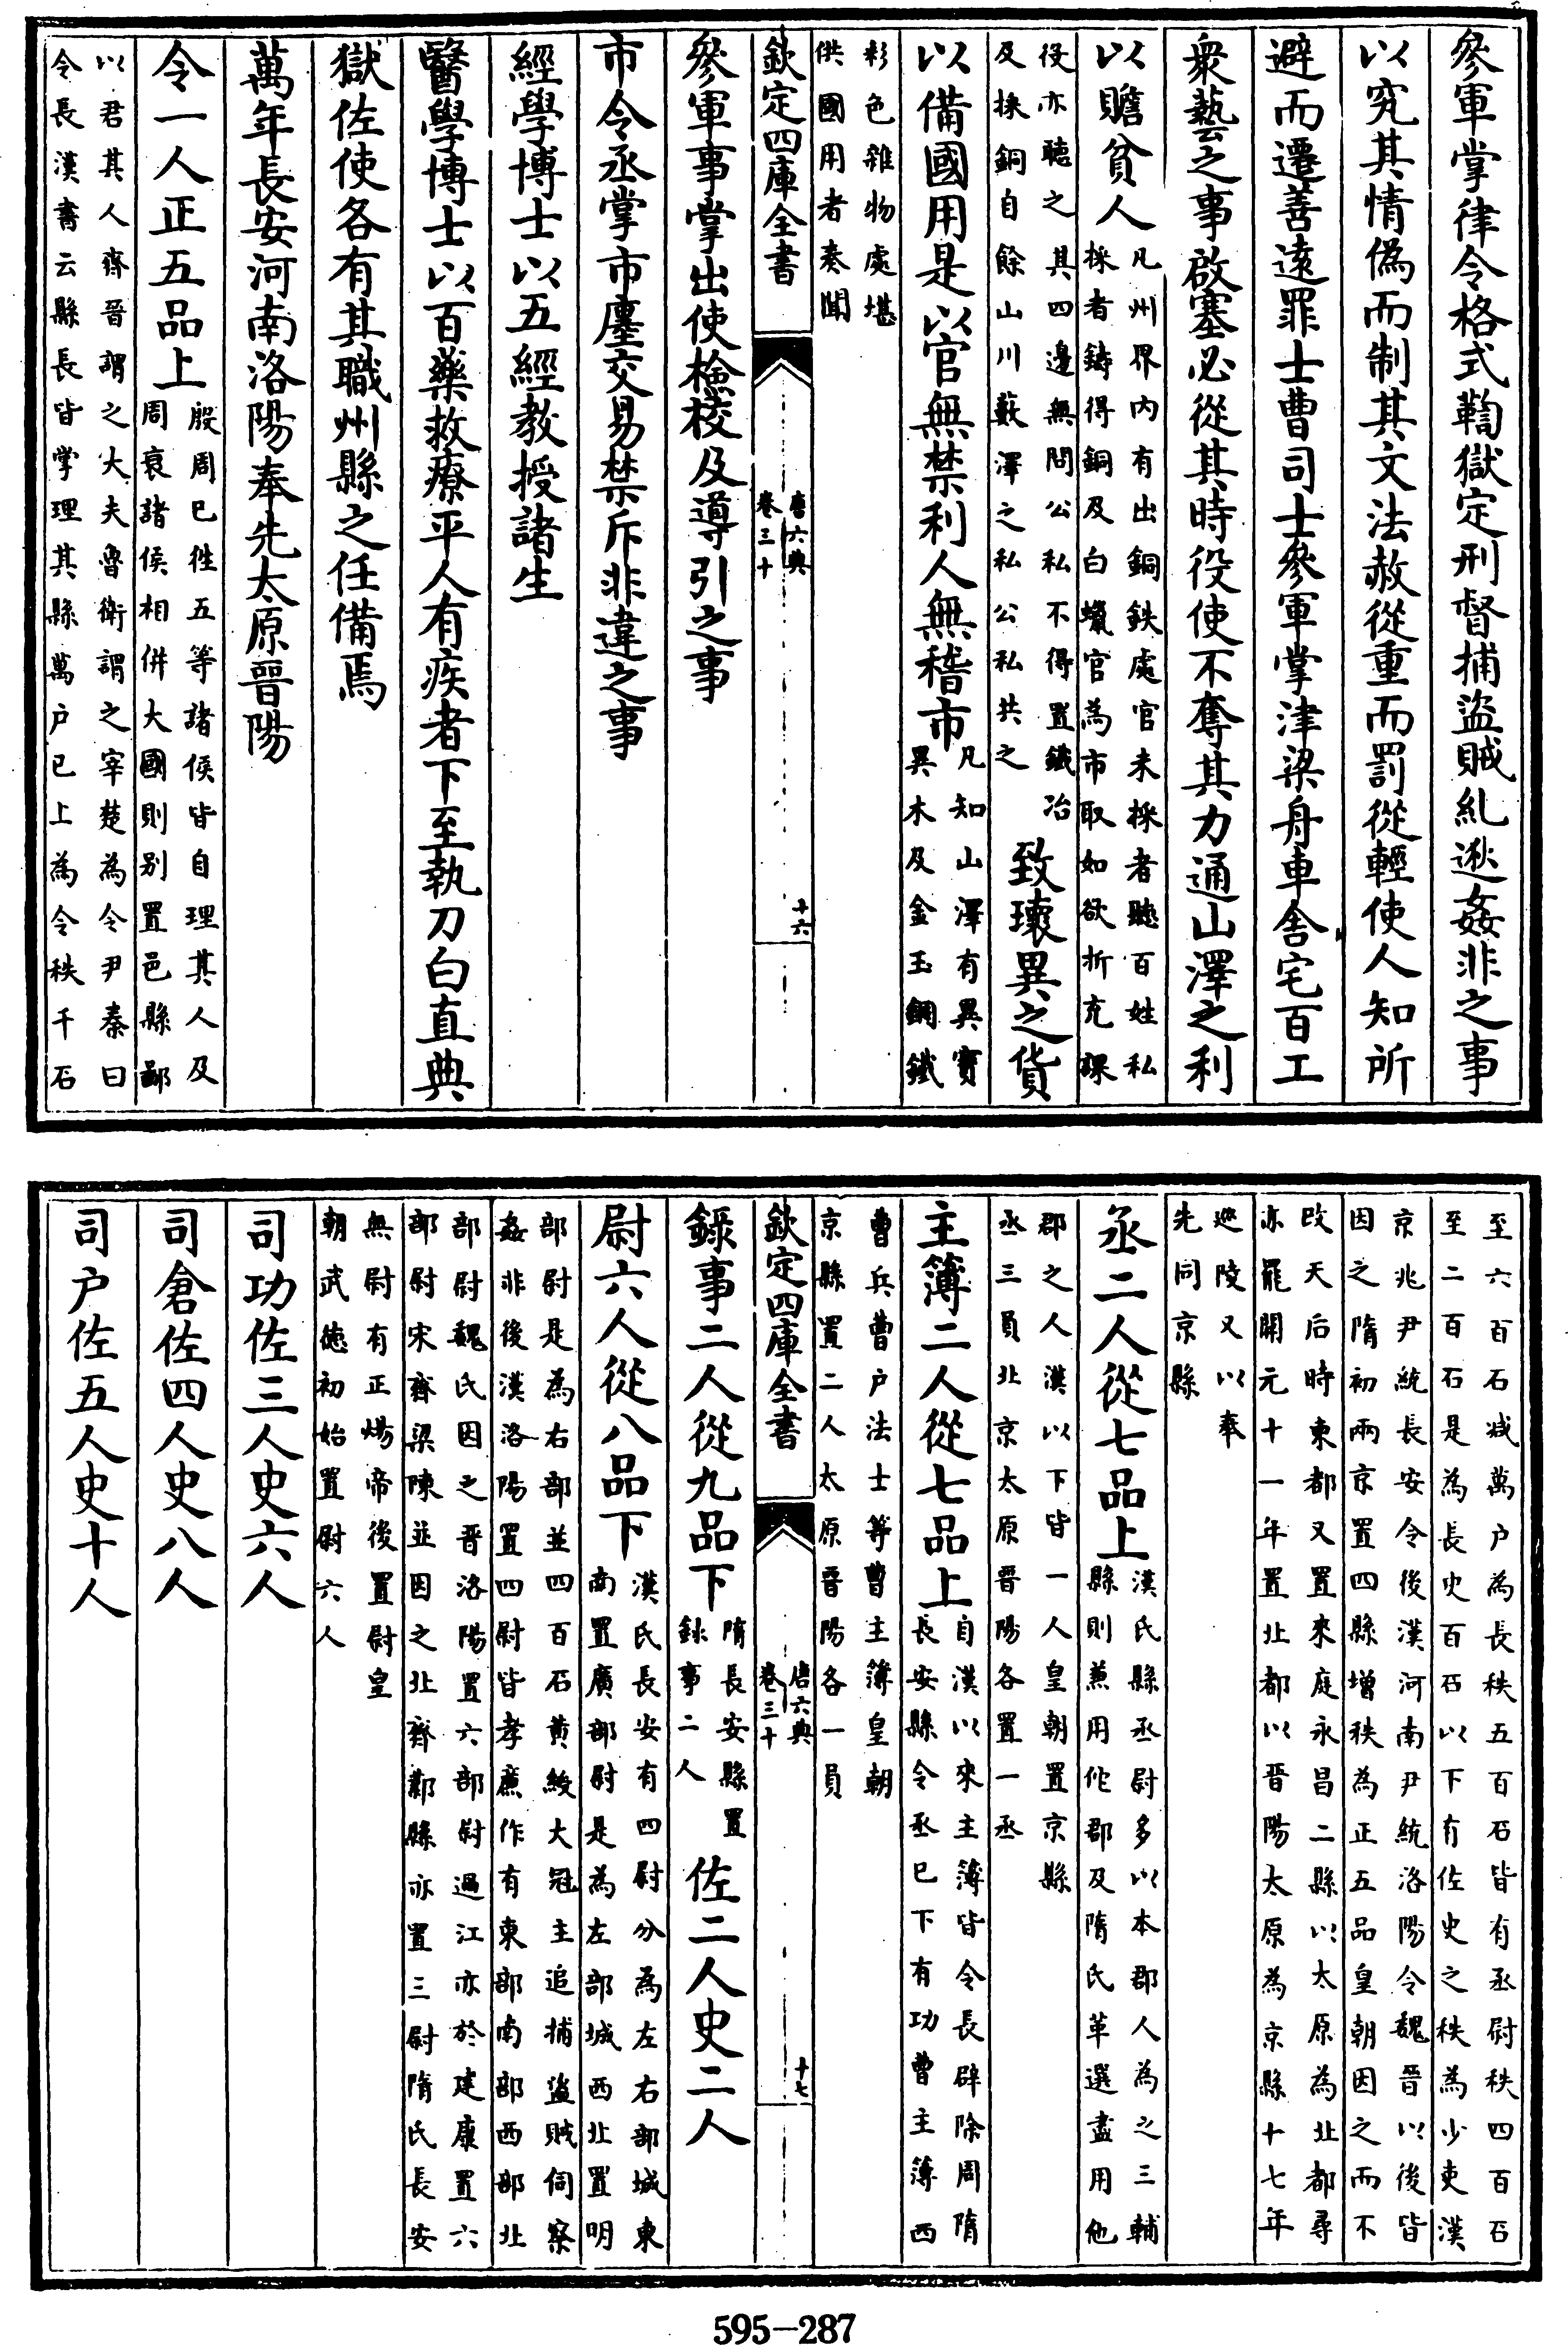 參軍掌律令格式鞫獄定刑督捕盜賊糺逖姦非之事
以究其情偽而制其文法赦從重而罰從輕使人知所
避而遷善遠罪士曹司士參軍掌津梁舟車舍宅百工
衆藝之事啟塞必從其時役使不奪其力通山澤之利
以贍貧人
凡州界内有出銅鉄處官未採者聽百姓私
採者鑄得銅及白蠟官為市取如欲折充課
役亦聽之其四邊無問公私不得置鐵冶
及採銅自餘山川藪澤之私公私共之
致瓌異之貨
以備國用是以官無禁利人無稽市
凡知山澤有異寶
異木及金玉銅鐵
彩色雜物處堪
供國用者奏聞
欽定四庫全書
唐六典
卷三十
十六
參軍事掌出使檢校及導引之事
市令丞掌市廛交易禁斥非違之事
經學博士以五經教授諸生
醫學博士以百藥救療平人有疾者下至執刀白直典
獄佐使各有其職州縣之任備焉
萬年長安河南洛陽奉先太原晉陽
令一人正五品上
殷周已徃五等諸侯皆自理其人及
周衰諸侯相併大國則别置邑縣鄙
以君其人齊晉謂之大夫魯衛謂之宰楚為令尹秦曰
令長漢書云縣長皆掌理其縣萬户已上為令秩千石
至六百石减萬户為長秩五百石皆有丞尉秩四百石
至二百石是為長吏百石以下有佐史之秩為少吏漢
京兆尹統長安令後漢河南尹統洛陽令魏晉以後皆
因之隋初兩京置四縣增秩為正五品皇朝因之而不
改天后時東都又置來庭永昌二縣以太原為北都尋
亦罷開元十一年置北都以晉陽太原為京縣十七年
廵陵又以奉
先同京縣
丞二人從七品上
漢氏縣丞尉多以本郡人為之三輔
縣則兼用佗郡及隋氏革選盡用他
郡之人漢以下皆一人皇朝置京縣
丞三員北京太原晉陽各置一丞
主簿二人從七品上
自漢以來主簿皆令長辟除周隋
長安縣令丞已下有功曹主簿西
曹兵曹户法士等曹主簿皇朝
京縣置二人太原晉陽各一員
欽定四庫全書
唐六典
卷三十
十七
錄事二人從九品下
隋長安縣置
錄事二人
佐二人史二人
尉六人從八品下
漢氏長安有四尉分為左右部城東
南置廣部尉是為左部城西北置明
部尉是為右部並四百石黄綬大冠主追捕盜賊伺察
姦非後漢洛陽置四尉皆孝廉作有東部南部西部北
部尉魏氏因之晉洛陽置六部尉過江亦於建康置六
部尉宋齊梁陳並因之北齊鄴縣亦置三尉隋氏長安
無尉有正煬帝後置尉皇
朝武徳初始置尉六人
司功佐三人史六人
司倉佐四人史八人
司户佐五人史十人
595－287